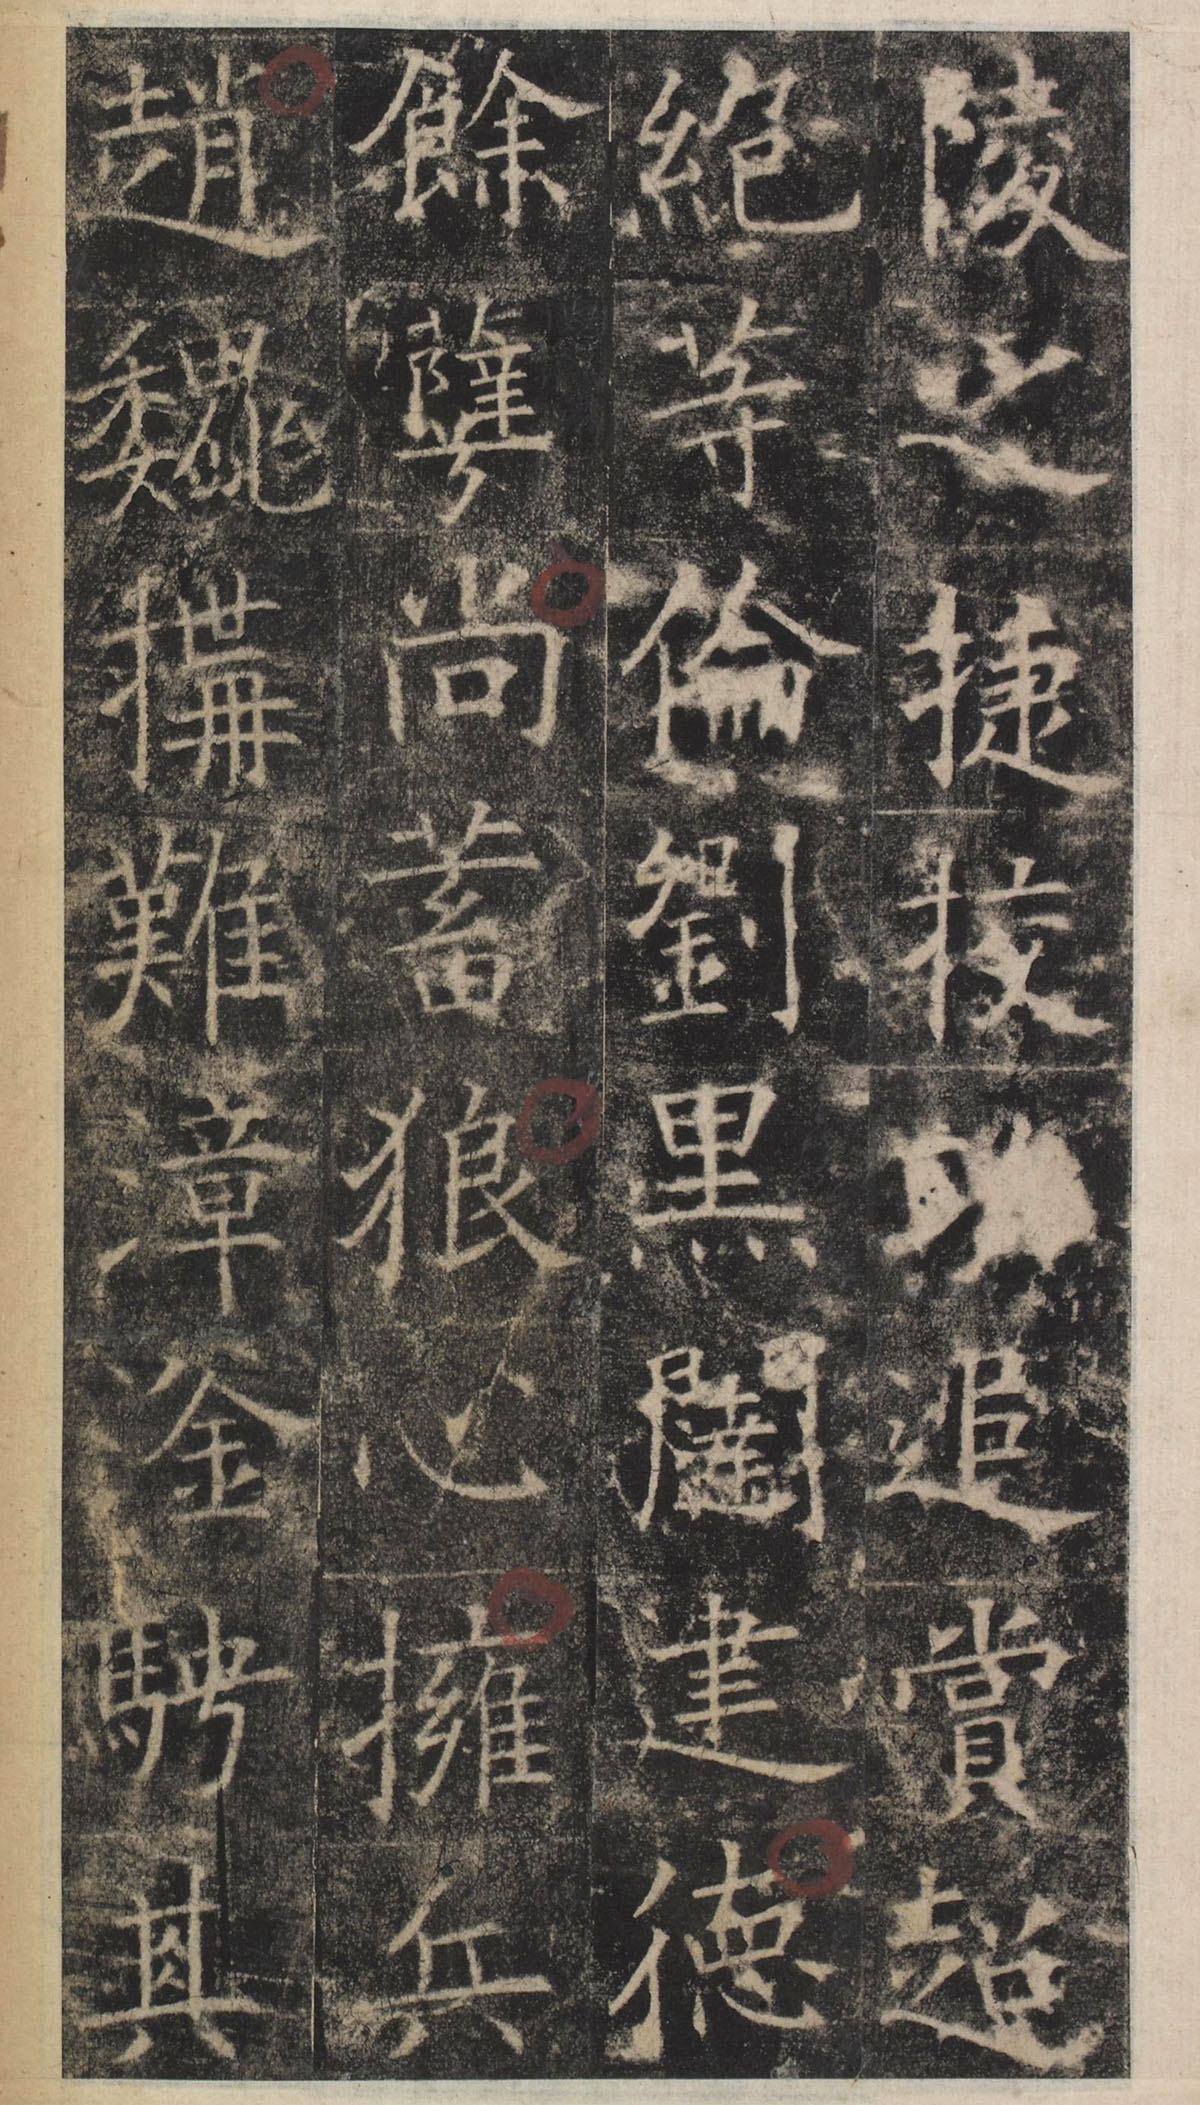 陵之捷校功追賞超
絕等倫劉黑闥建德
餘孽尚蓄狼心擁兵
趙魏搆難漳滏騁其